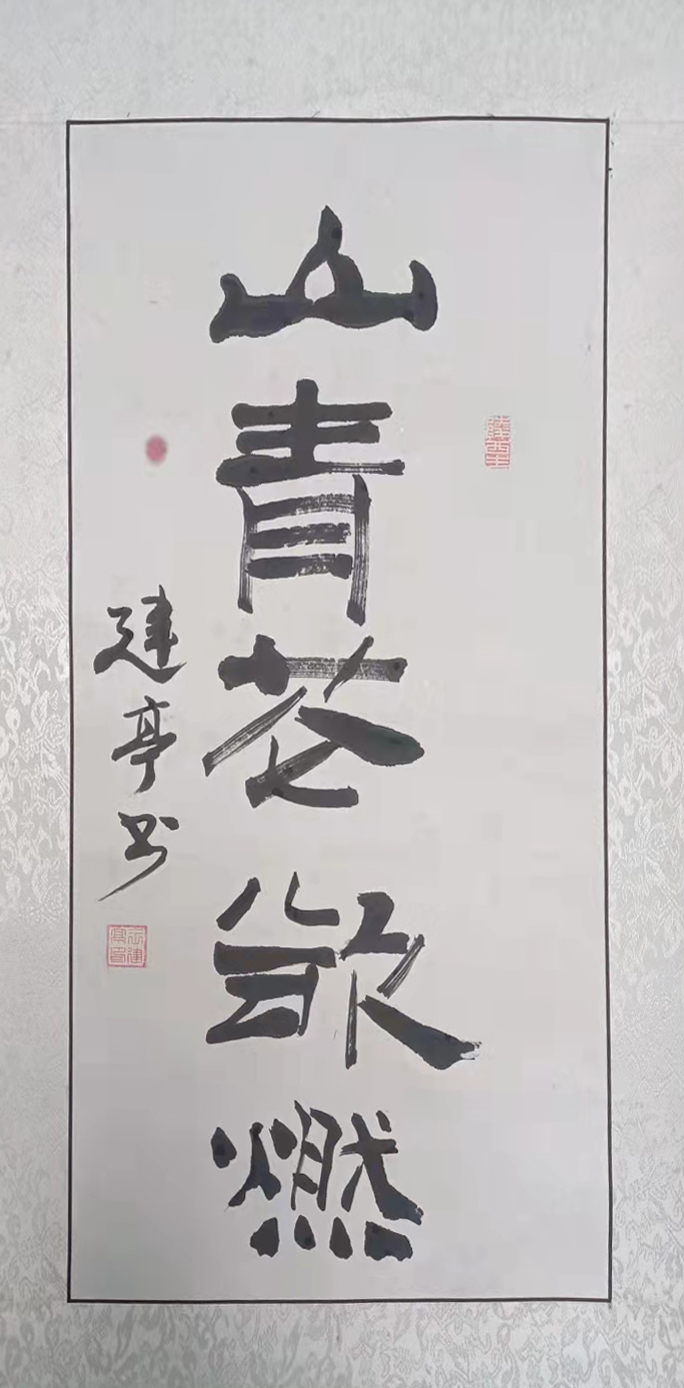 山青花欲燃
建亭书